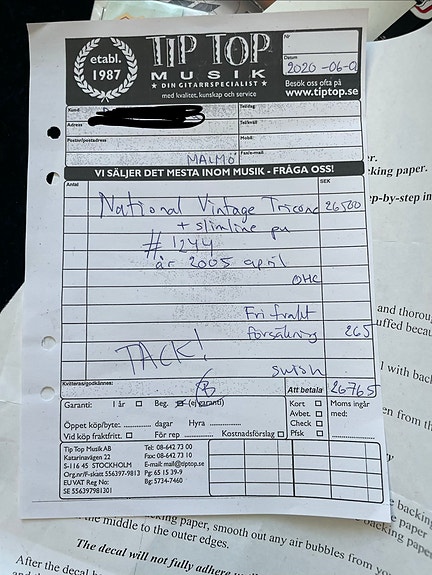 etabl.
1987
TIP TOP
MUSIK
DIN GITARRSPECIALIST
med kvalitet, kunskap och service
Nr
Datum
2020-06-0
Besök oss ofta på
www.tiptop.se
Kund
Adress
Postnr/postadress
MALMÖ
Teldag
Tel/kväll
Mobil
Fax/e-mail
VI SÄLJER DET MESTA INOM MUSIK - FRÅGA OSS!
Antal
SEK
National Vintage Tricone 26500
+ slimline pu
# 1244
år 2005 april
OHC
Fri frakt
försäkring 265
TACK!
swish
Kvitteras/godkännes:
Att betala 26765
Garanti: 1 år Beg. (ej garanti)
Öppet köp/byte: dagar Hyra
Vid köp fraktfritt. För rep Kostnadsförslag
Kort
Avbet.
Check
Pfsk
Moms ingår
med:
Tip Top Musik AB
Katarinavägen 22
S-116 45 STOCKHOLM
Org.nr/F-skatt 556397-9813
EU VAT Reg No:
SE 556397981301
Tel: 08-642 73 00
Fax: 08-642 73 10
E-mail: mail@tiptop.se
Pg: 65 15 39-9
Bg: 5734-7460
er.
king paper.
ep-by-step in
and thorou
uffed becau
l with back
en from th
y
e backing
e paper
backing paper
king paper, smooth out any air bubbles from
the middle to the outer edges.
The decal will not fully adhere
After the decal